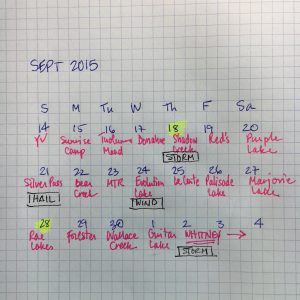 SEPT 2015
S M Tu W Th F Sa
14 15 16 17 18 19 20
YV Sunrise Camp Tuolumne Mead Donohue Shadow Creek Red's Purple Lake
STORM
21 22 23 24 25 26 27
Silver Pass Bear Creek MTR Evolution Lake Le Conte Palisade Lake Marjorie Lake
HAIL WIND
28 29 30 1 2 3 4
Rae Lakes Forester Wallace Creek Guitar Lake WHITNEY →
STORM